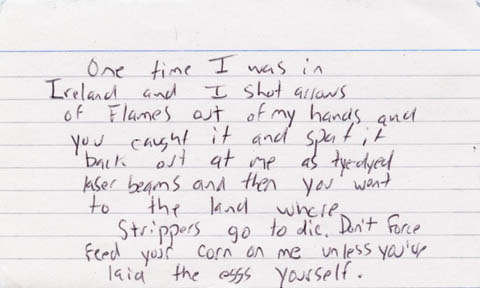 One time I was in
Ireland and I shot arrows
of Flames out of my hands and
you caught it and spat it
back out at me as tye-dyed
laser beams and then you went
to the land where
Strippers go to die. Don't force
feed your corn on me unless you've
laid the eggs yourself.